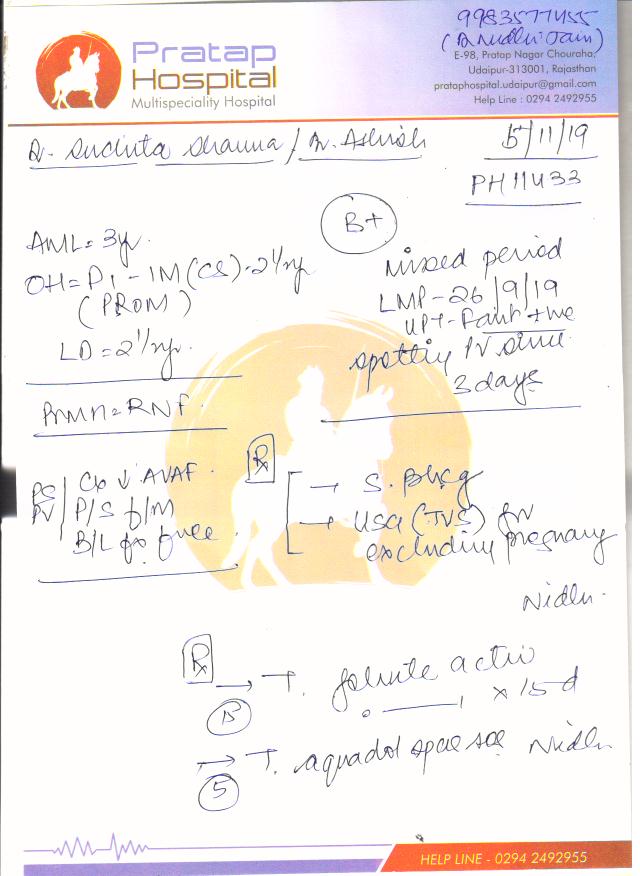 9983577455
(Dr Nidhi Jain)
Pratap
Hospital
Multispeciality Hospital
E-98, Pratap Nagar Chouraha,
Udaipur-313001, Rajasthan
prataphospital.udaipur@gmail.com
Help Line : 0294 2492955
Dr. Suchita Sharma / Dr. Ashish
5/11/19
PH11433
B+
AML = 3yr.
OH = P1 - 1M (CS) - 2 1/2 yr
(PROM)
LD = 2 1/2 yr.
Missed period
LMP - 26/9/19
UPT - Faint +ve
spotting PV since
3 days
PMMH = RNF.
PS
PV
Cx ↓ AVAF.
P/S f/M
B/L fx free
Rx
→ S. βhcg
→ USG (TVS) for
excluding pregnancy
Nidhi
Rx
→ T. folvite active
x 15 d
→ T. spas sos
Nidhi
HELP LINE - 0294 2492955